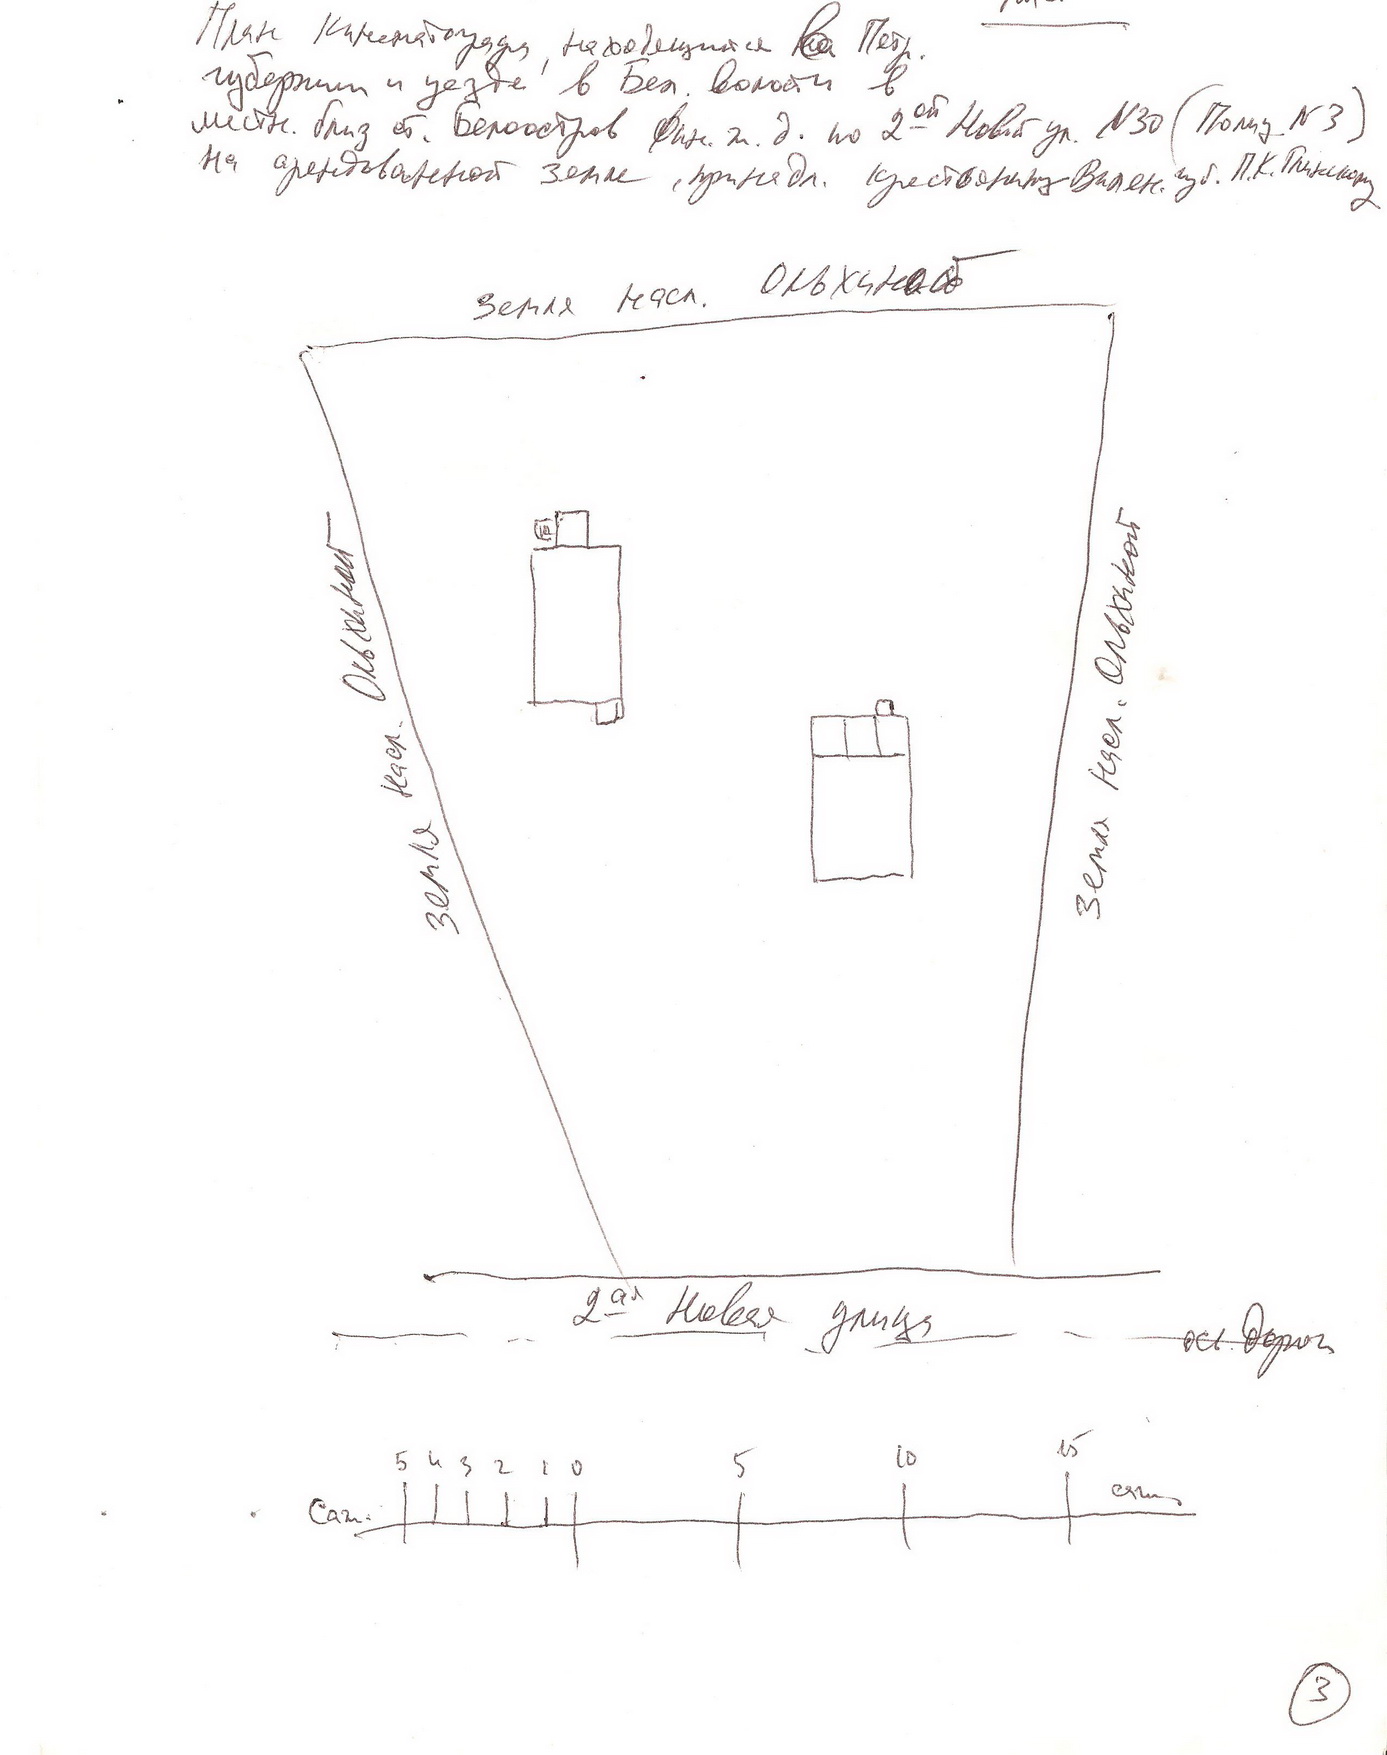 План Кинематографа, находящийся на Петр.
губернии и уезде в Бел. волости в
местн. близ ст. Белоостров Фин. ж. д. по 2ой Новой ул. N30 (Полиц. N3)
на арендованной земле, принадл. крестьянину Вилен. губ. П.К. Глинскому
Земля насл. Ольхиной
Земля насл. Ольхиной
Земля насл. Ольхиной
2ая Новая улица
ось дороги
5 4 3 2 1 0 5 10 15
Саж. саж.
3